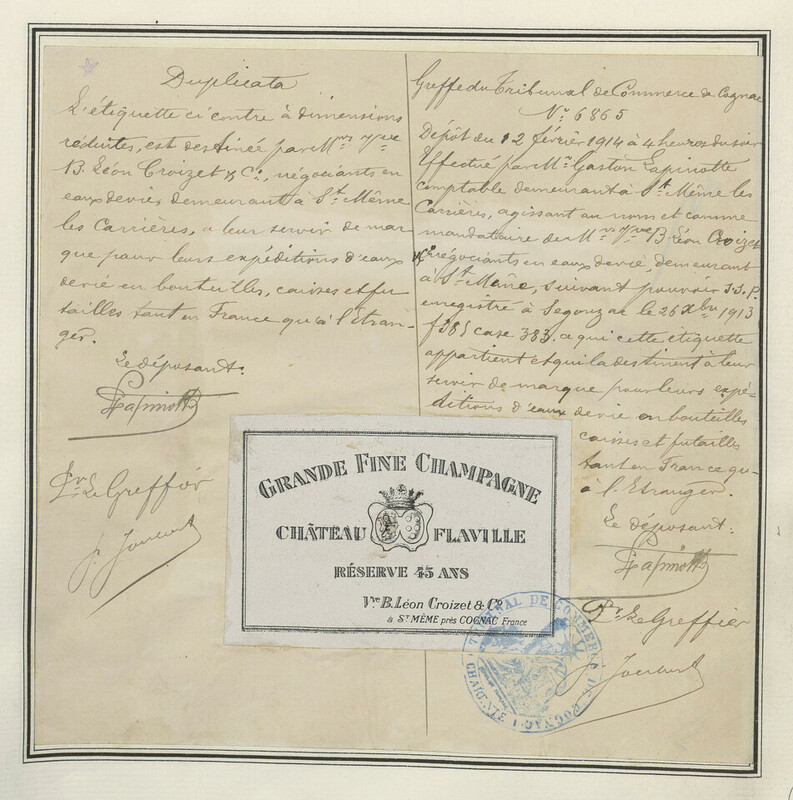 Duplicata
L'étiquette ci contre à dimensions
réduites, est destinée par Mrs Vve
B. Léon Croizet & Cie, négociants en
eaux devie, demeurant à St Même
les Carrières, a leur servir de mar-
que pour leurs expéditions d'eaux
devie en bouteilles, caisses et fu-
tailles tant en France qu'à l'Etran-
ger.
Le déposant:
GLapinotte
Pr Le Greffier
Greffe du Tribunal de Commerce de Cognac
No 6865
Dépôt du 12 février 1914 à 4 heures du soir
Effectué par Mr Gaston Lapinotte
comptable demeurant à St Même les
Carrières, agissant au nom et comme
mandataire de Mrs Vve B Léon Croizet
& Cie négociants en eaux devie, demeurant
à St Même, suivant pouvoir S.S.P.
enregistré à Segonzac le 26 Xbre 1913
case 383. a qui cette étiquette
appartient et qui la destinent à leur
servir de marque pour leurs expé-
ditions d'eaux devie en bouteilles
caisses et futailles
tant en France qu-
à l'Etranger.
Le déposant:
GLapinotte
Pr Le Greffier
GRANDE FINE CHAMPAGNE
CHÂTEAU FLAVILLE
RÉSERVE 45 ANS
Vve B. Léon Croizet & Co
à ST MÊME près COGNAC France
TRIBUNAL DE COMMERCE DE COGNAC
CHARENTE